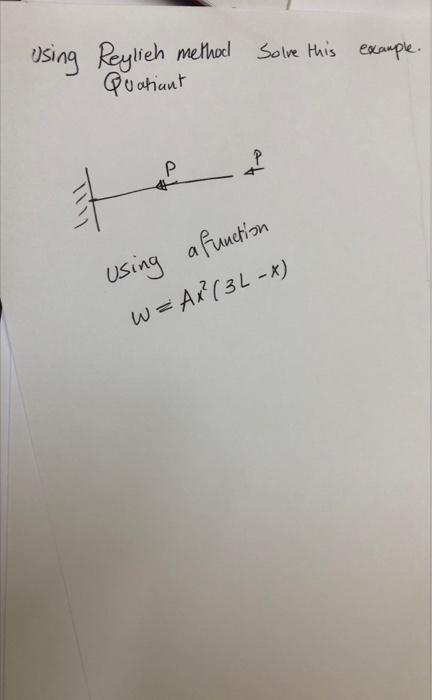 Using Reylieh method Solve this example.
Quatiant
P
P
Using a function
W = Ax²(3L-x)